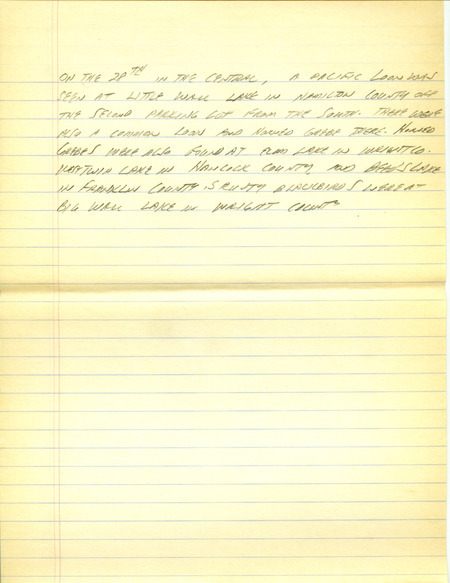 ON THE 28TH IN THE CENTRAL, A PACIFIC LOON WAS
SEEN AT LITTLE WALL LAKE IN HAMILTON COUNTY OFF
THE SECOND PARKING LOT FROM THE SOUTH. THERE WERE
ALSO A COMMON LOON AND HORNED GREBE THERE. HORNED
GREBES WERE ALSO FOUND AT LAKE IN WRIGHT CO.
TWIN LAKE IN HANCOCK COUNTY, AND LAKE
IN FRANKLIN COUNTY. 5 RUSTY BLACKBIRDS WERE AT
BIG WALL LAKE IN WRIGHT COUNTY